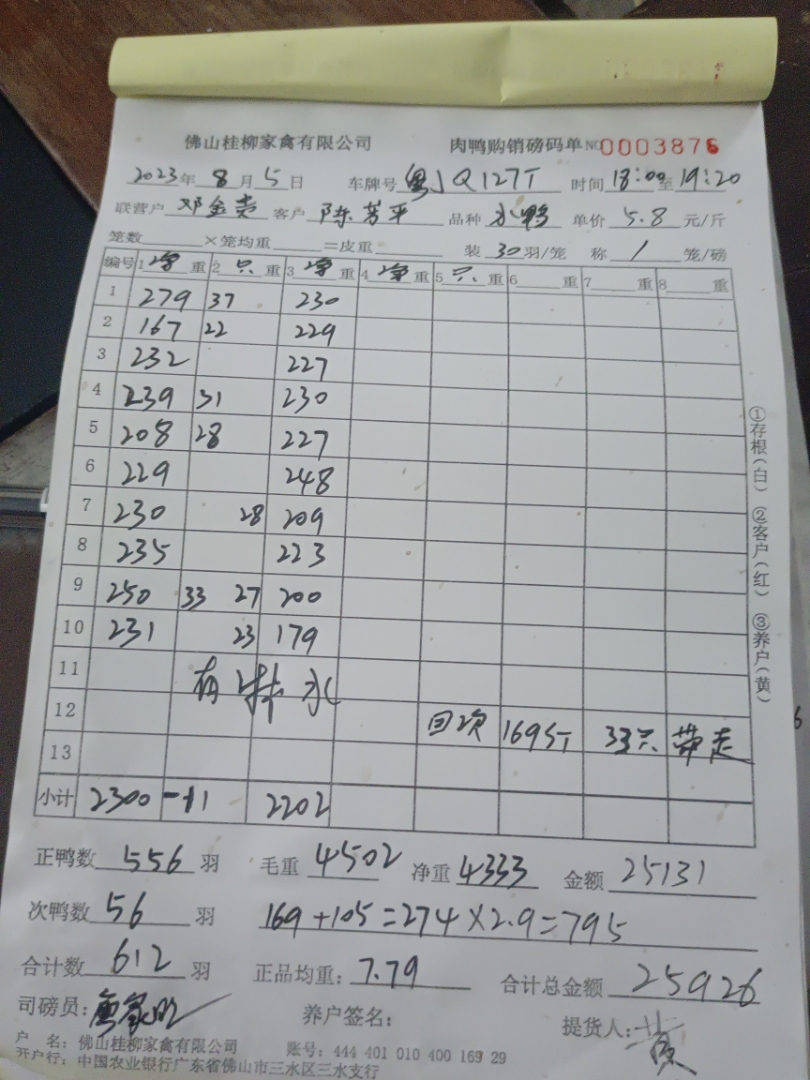 佛山桂柳家禽有限公司 肉鸭购销磅码单 NO 0003876
2023年 8月 5日 车牌号 粤J Q127T 时间 18:00 至 19:20
联营户 邓金贵 客户 陈芳平 品种 水鸭 单价 5.8 元/斤
笼数 ×笼均重 =皮重 装 30 羽/笼 称 1 笼/磅
编号 1 重 2 只 重 3 重 4 重 5 只 重 6 重 7 重 8 重
1 279 37 230
2 167 22 229
3 232 227
4 239 31 230
5 208 28 227
6 229 248
7 230 28 209
8 235 223
9 250 33 27 200
10 231 23 179
11 有 水
12 回次 169斤 33只 带走
13
小计 2300 -11 2202
正鸭数 556 羽 毛重 4502 净重 4333 金额 25131
次鸭数 56 羽 169+105=274×2.9=795
合计数 612 羽 正品均重: 7.79 合计总金额 25926
司磅员: 养户签名: 提货人: 黄
户 名: 佛山桂柳家禽有限公司 账号: 444 401 010 400 169 29
开户行: 中国农业银行广东省佛山市三水区三水支行
①存根(白) ②客户(红) ③养户(黄)